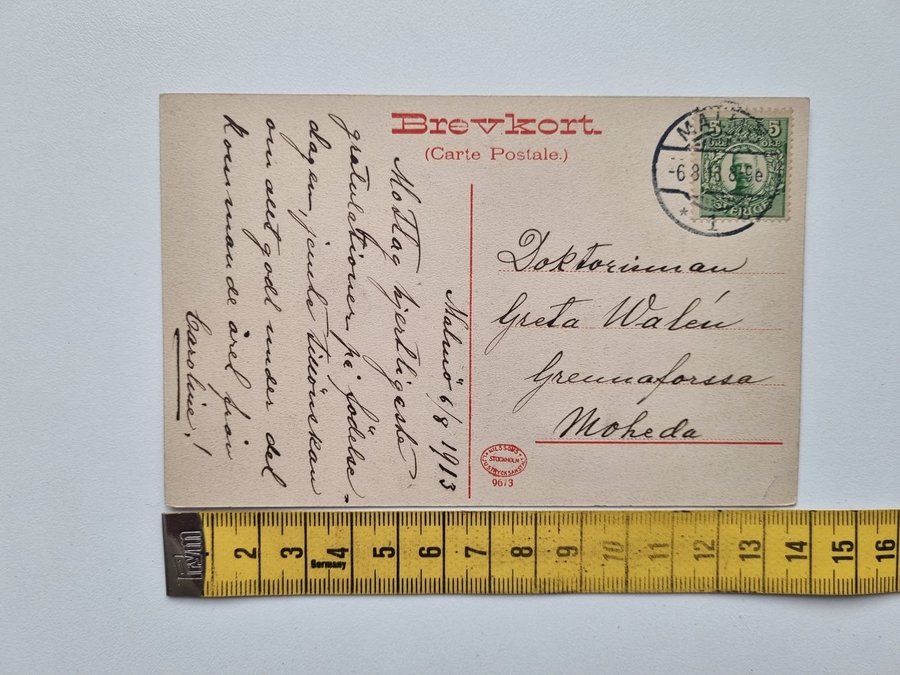 Brevkort.
(Carte Postale.)
Malmö 6/8 1913
Mottag hjertligaste
gratulationer på födelse=
dagen, jemte tillönskan
om allt godt under det
kommande året från
Caroline!
MAL
-6.8.13.8-9e
* 1
5 5
ÖRE ÖRE
SVERIGE
Doktorinnan
Greta Walén
Grennaforssa
Moheda
NILSSONS
STOCKHOLM
LJUSTRYCKSANSTALT
9613
Germany
2 3 4 5 6 7 8 9 10 11 12 13 14 15 16